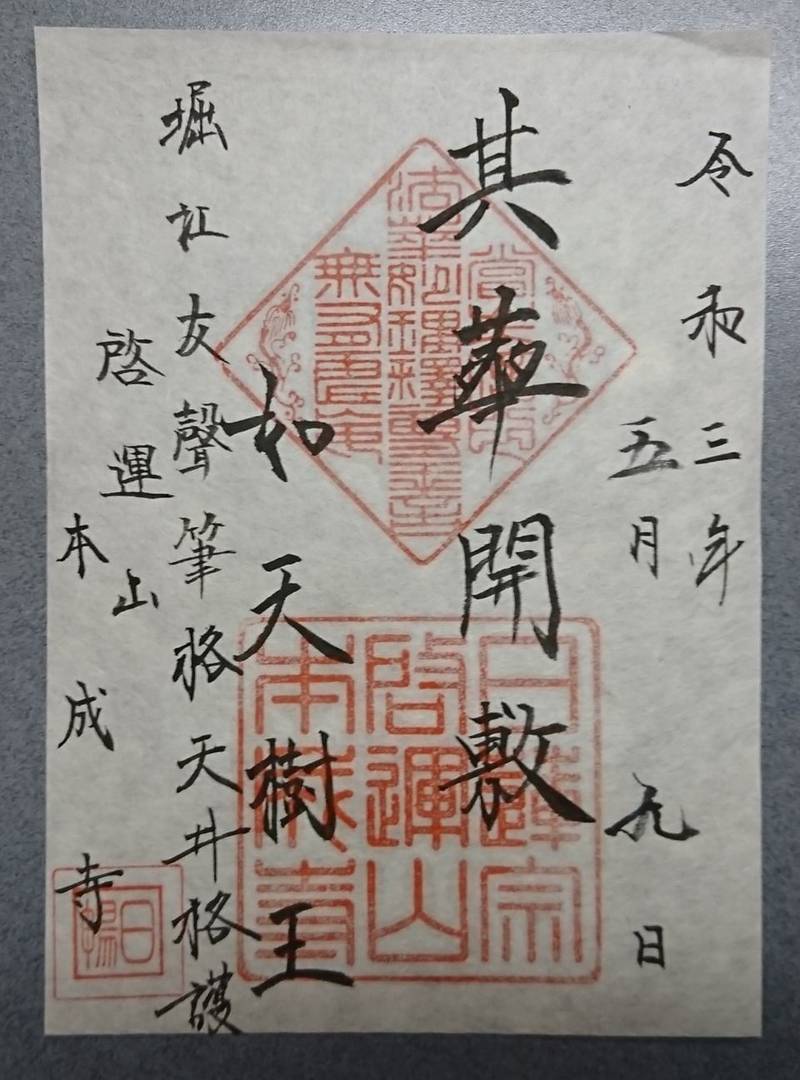 令和三年
五月九日
其華開敷
如天樹王
堀江友聲筆格天井格護
啓運山
本成寺
日蓮宗
啓運山
本成寺